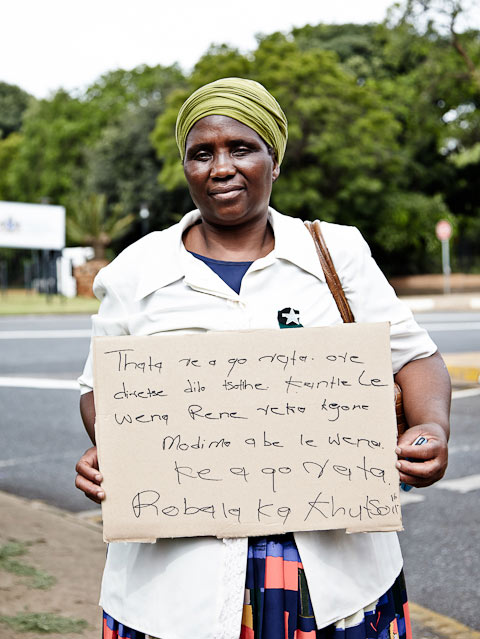 Thata re a go rata. ore
diretse dilo tsothe. Kantle Le
wena Rene retla kgone
Modimo a be le wena.
ke a go rata.
Robala ka Khutso